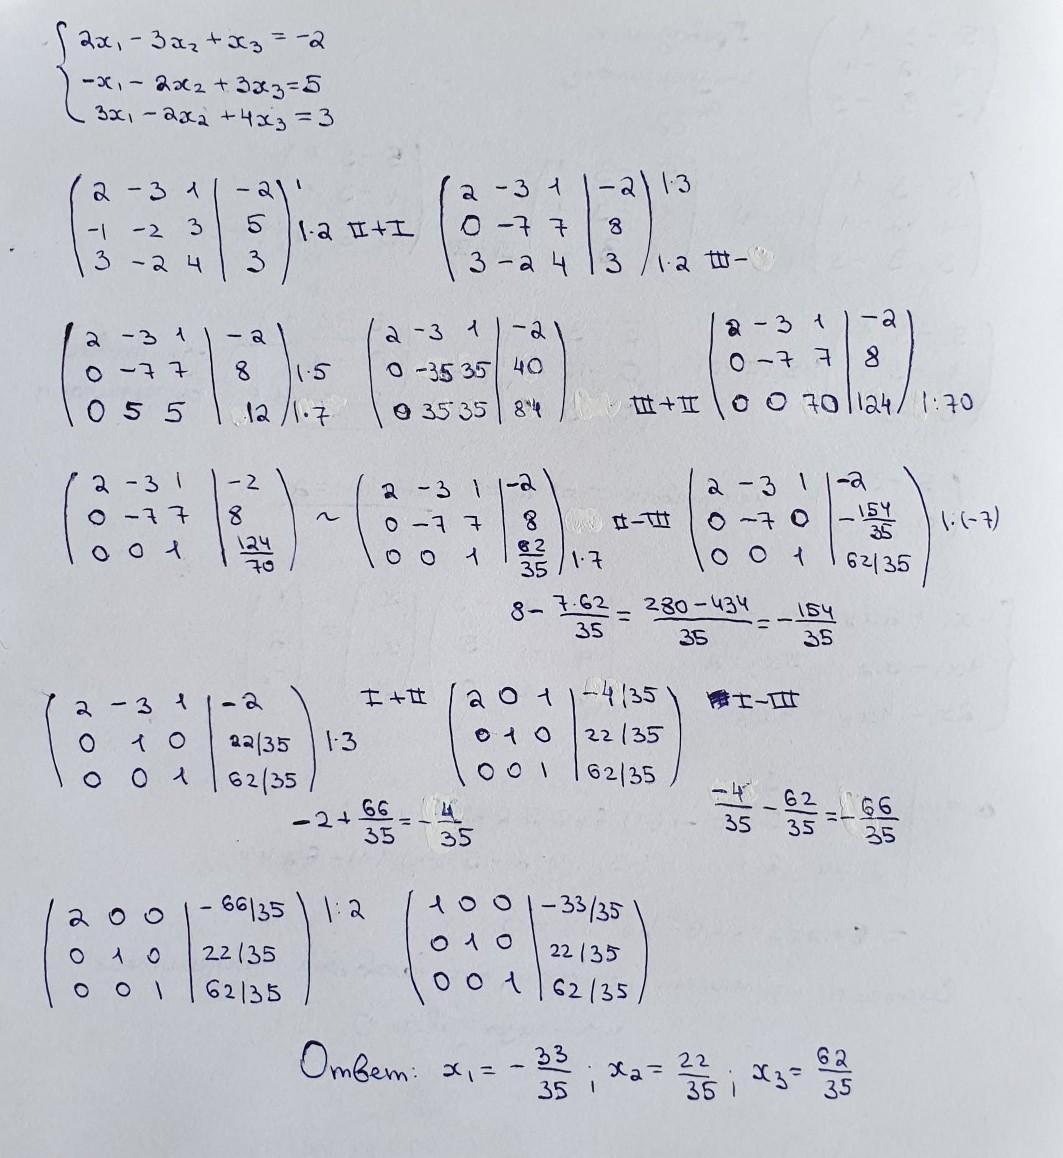 2x₁ - 3x₂ + x₃ = -2
-x₁ - 2x₂ + 3x₃ = 5
3x₁ - 2x₂ + 4x₃ = 3
2 -3 1 | -2
-1 -2 3 | 5 |·2 II+I
3 -2 4 | 3
2 -3 1 | -2 |·3
0 -7 7 | 8
3 -2 4 | 3 |·2 III-
2 -3 1 | -2
0 -7 7 | 8 |·5
0 5 5 | 12 |·7
2 -3 1 | -2
0 -35 35 | 40
0 35 35 | 84 III+II
2 -3 1 | -2
0 -7 7 | 8
0 0 70 | 124 |:70
2 -3 1 | -2
0 -7 7 | 8
0 0 1 | 124/70
~
2 -3 1 | -2
0 -7 7 | 8 II-III
0 0 1 | 62/35 |·7
2 -3 1 | -2
0 -7 0 | -154/35 |:(-7)
0 0 1 | 62/35
8 - 7·62/35 = 280-434/35 = -154/35
2 -3 1 | -2
0 1 0 | 22/35 |·3
0 0 1 | 62/35
I+II
2 0 1 | -4/35 I-III
0 1 0 | 22/35
0 0 1 | 62/35
-2 + 66/35 = -4/35
-4/35 - 62/35 = -66/35
2 0 0 | -66/35 |:2
0 1 0 | 22/35
0 0 1 | 62/35
1 0 0 | -33/35
0 1 0 | 22/35
0 0 1 | 62/35
Ответ: x₁ = -33/35; x₂ = 22/35; x₃ = 62/35